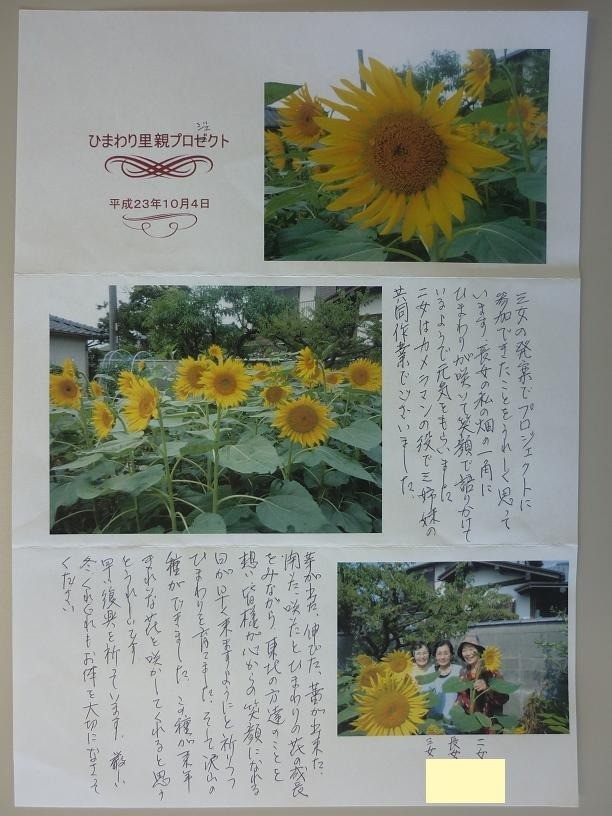 ひまわり里親プロゼクト
ジェ
平成23年10月4日
三女の発案でプロジェクトに
参加できたことをうれしく思って
います。長女の私の畑の一角に
ひまわりが咲いて笑顔で語りかけて
いるようで元気をもらいました
二女はカメラマンの役で三姉妹の
共同作業でございました。
芽が出た、伸びた、蕾が出来た、
開いた、咲いたとひまわりの花の成長
をみながら、東北の方達のことを
想い皆様が心からの笑顔になれる
日が早く来ますようにと祈りつつ
ひまわりを育てました。そして沢山の
種ができました。この種が来年
きれいな花を咲かしてくれると思う
とうれしいです
早い復興を祈っています。厳しい
冬くれぐれもお体を大切になさって
ください
二女
長女
三女